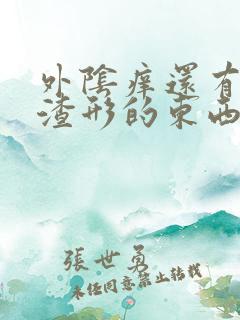 外陰痒還有
渣形的東西
張世勇
未经同意禁止转载